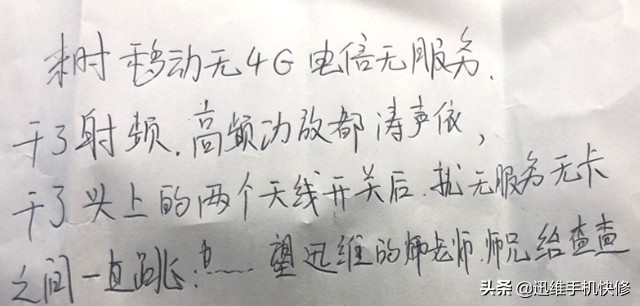 来时移动无4G 电信无服务.
干了射频.高频功放都涛声依,
干了头上的两个天线开关后.就无服务无卡
之间一直跳 …… 望迅维的师老师.师兄给查查
头条 @迅维手机快修